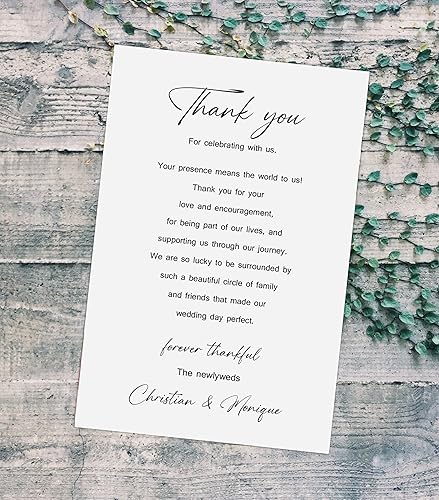 Thank you
For celebrating with us.
Your presence means the world to us!
Thank you for your
love and encouragement,
for being part of our lives, and
supporting us through our journey.
We are so lucky to be surrounded by
such a beautiful circle of family
and friends that made our
wedding day perfect.
forever thankful
The newlyweds
Christian & Monique